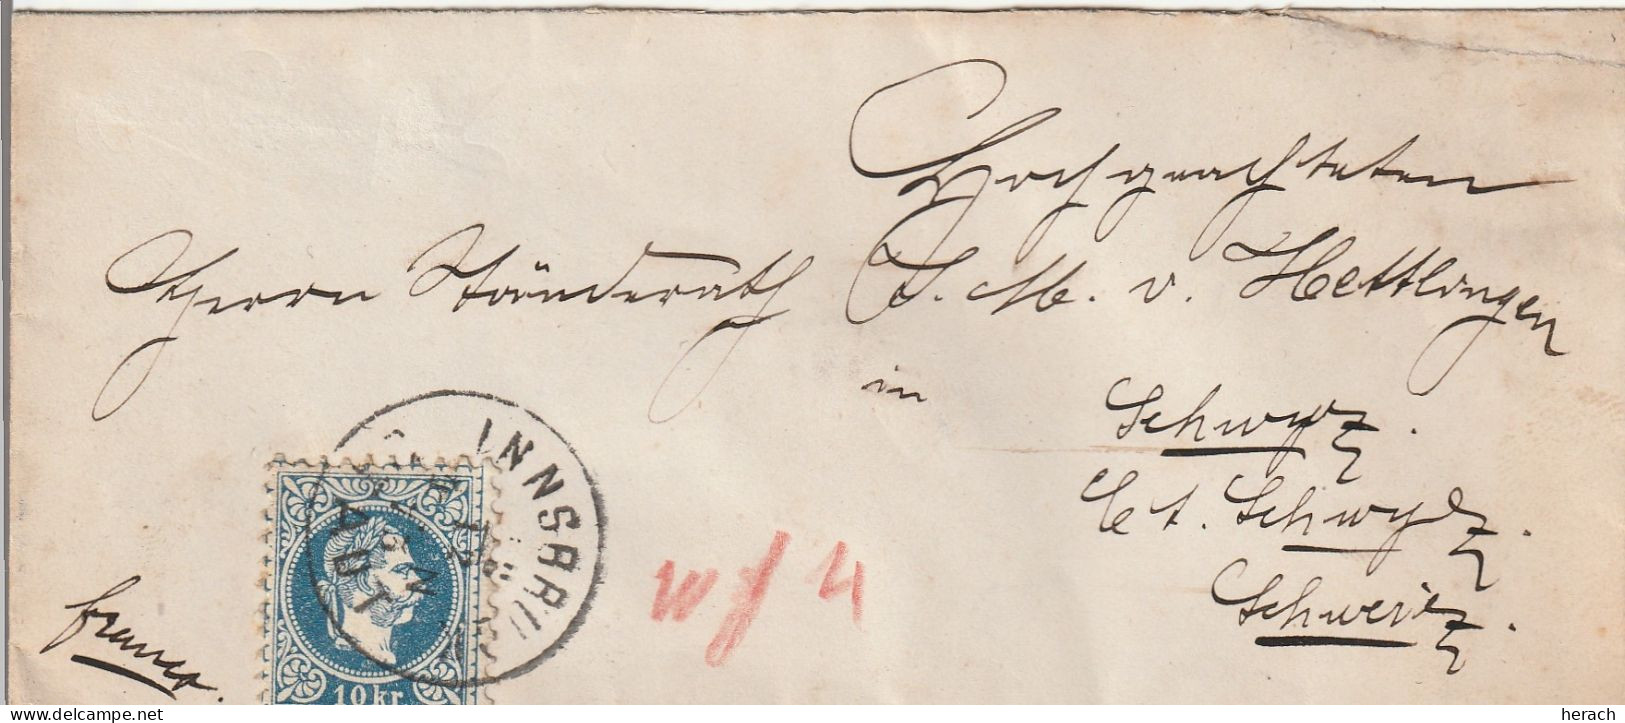 Hochgeachteten
Herrn Ständerath J. M. v. Hettlingen
in
Schwyz.
Ct. Schwyz.
Schweiz.
franco.
INNSBRU
STADT
10 kr.
wf 4
www.delcampe.net
herach